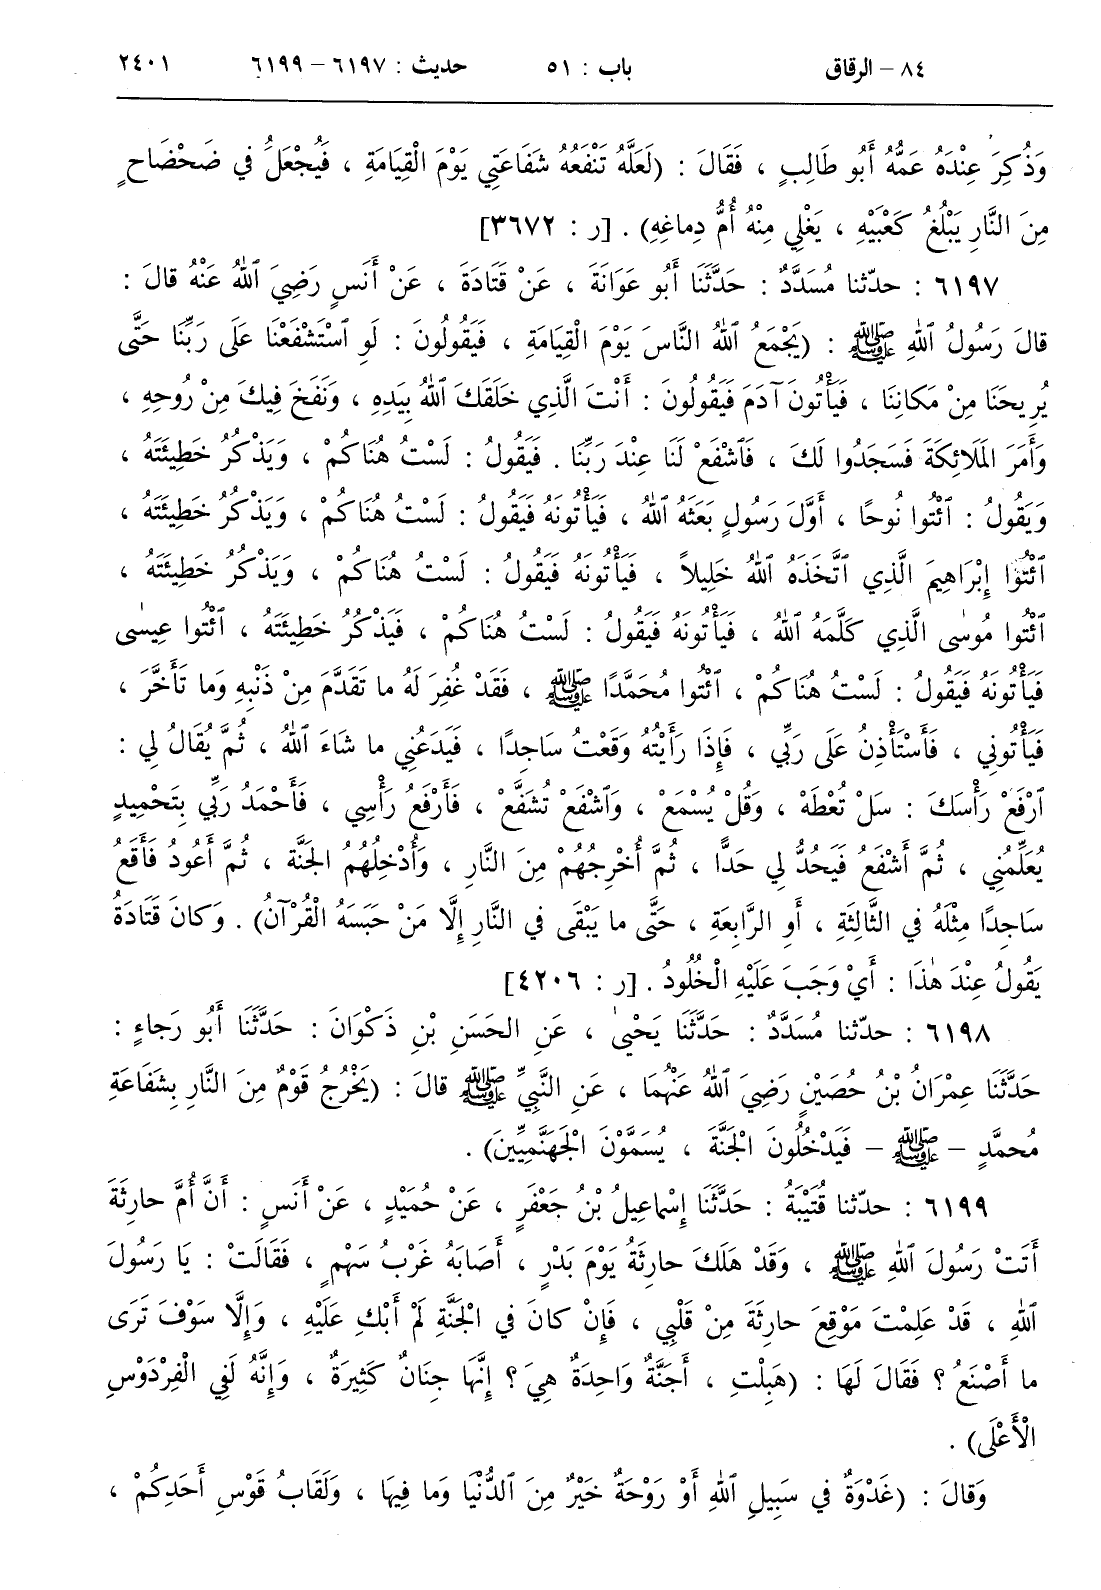 ٨٤ – الرقاق    باب : ٥١    حديث : ٦١٩٧ – ٦١٩٩    ٢٤٠١
وَذُكِرَ عِنْدَهُ عَمُّهُ أَبُو طَالِبٍ ، فَقَالَ : (لَعَلَّهُ تَنْفَعُهُ شَفَاعَتِي يَوْمَ الْقِيَامَةِ ، فَيُجْعَلُ في ضَحْضَاحٍ
مِنَ النَّارِ يَبْلُغُ كَعْبَيْهِ ، يَغْلِي مِنْهُ أُمُّ دِماغِهِ) . [ر : ٣٦٧٢]
٦١٩٧ : حدّثنا مُسَدَّدٌ : حَدَّثَنَا أَبُو عَوَانَةَ ، عَنْ قَتَادَةَ ، عَنْ أَنَسٍ رَضِيَ ٱللهُ عَنْهُ قالَ :
قالَ رَسُولُ ٱللهِ ﷺ : (يَجْمَعُ ٱللهُ النَّاسَ يَوْمَ الْقِيَامَةِ ، فَيَقُولُونَ : لَوِ ٱسْتَشْفَعْنَا عَلَى رَبِّنَا حَتَّى
يُرِيحَنَا مِنْ مَكانِنَا ، فَيَأْتُونَ آدَمَ فَيَقُولُونَ : أَنْتَ الَّذِي خَلَقَكَ ٱللهُ بِيَدِهِ ، وَنَفَخَ فِيكَ مِنْ رُوحِهِ ،
وَأَمَرَ المَلَائِكَةَ فَسَجَدُوا لَكَ ، فَٱشْفَعْ لَنَا عِنْدَ رَبِّنَا . فَيَقُولُ : لَسْتُ هُنَاكُمْ ، وَيَذْكُرُ خَطِيئَتَهُ ،
وَيَقُولُ : ٱئْتُوا نُوحًا ، أَوَّلَ رَسُولٍ بَعَثَهُ ٱللهُ ، فَيَأْتُونَهُ فَيَقُولُ : لَسْتُ هُنَاكُمْ ، وَيَذْكُرُ خَطِيئَتَهُ ،
ٱئْتُوا إِبْرَاهِيمَ الَّذِي ٱتَّخَذَهُ ٱللهُ خَلِيلاً ، فَيَأْتُونَهُ فَيَقُولُ : لَسْتُ هُنَاكُمْ ، وَيَذْكُرُ خَطِيئَتَهُ ،
ٱئْتُوا مُوسٰى الَّذِي كَلَّمَهُ ٱللهُ ، فَيَأْتُونَهُ فَيَقُولُ : لَسْتُ هُنَاكُمْ ، فَيَذْكُرُ خَطِيئَتَهُ ، ٱئْتُوا عِيسٰى
فَيَأْتُونَهُ فَيَقُولُ : لَسْتُ هُنَاكُمْ ، ٱئْتُوا مُحَمَّدًا ﷺ ، فَقَدْ غُفِرَ لَهُ ما تَقَدَّمَ مِنْ ذَنْبِهِ وَما تَأَخَّرَ ،
فَيَأْتُونِي ، فَأَسْتَأْذِنُ عَلَى رَبِّي ، فَإِذَا رَأَيْتُهُ وَقَعْتُ سَاجِدًا ، فَيَدَعُنِي ما شَاءَ ٱللهُ ، ثُمَّ يُقَالُ لِي :
ٱرْفَعْ رَأْسَكَ : سَلْ تُعْطَهْ ، وَقُلْ يُسْمَعْ ، وَٱشْفَعْ تُشَفَّعْ ، فَأَرْفَعُ رَأْسِي ، فَأَحْمَدُ رَبِّي بِتَحْمِيدٍ
يُعَلِّمُنِي ، ثُمَّ أَشْفَعُ فَيَحُدُّ لِي حَدًّا ، ثُمَّ أُخْرِجُهُمْ مِنَ النَّارِ ، وَأُدْخِلُهُمُ الجَنَّةَ ، ثُمَّ أَعُودُ فَأَقَعُ
سَاجِدًا مِثْلَهُ في الثَّالِثَةِ ، أَوِ الرَّابِعَةِ ، حَتَّى ما يَبْقَى في النَّارِ إِلَّا مَنْ حَبَسَهُ الْقُرْآنُ) . وَكانَ قَتَادَةُ
يَقُولُ عِنْدَ هٰذَا : أَيْ وَجَبَ عَلَيْهِ الْخُلُودُ . [ر : ٤٢٠٦]
٦١٩٨ : حدّثنا مُسَدَّدٌ : حَدَّثَنَا يَحْيىٰ ، عَنِ الحَسَنِ بْنِ ذَكْوَانَ : حَدَّثَنَا أَبُو رَجاءٍ :
حَدَّثَنَا عِمْرَانُ بْنُ حُصَيْنٍ رَضِيَ ٱللهُ عَنْهُمَا ، عَنِ النَّبِيِّ ﷺ قالَ : (يَخْرُجُ قَوْمٌ مِنَ النَّارِ بِشَفَاعَةِ
مُحمَّدٍ – ﷺ – فَيَدْخُلُونَ الجَنَّةَ ، يُسَمَّوْنَ الْجَهَنَّمِيِّينَ) .
٦١٩٩ : حدّثنا قُتَيْبَةُ : حَدَّثَنَا إِسْماعِيلُ بْنُ جَعْفَرٍ ، عَنْ حُمَيْدٍ ، عَنْ أَنَسٍ : أَنَّ أُمَّ حارِثَةَ
أَتَتْ رَسُولَ ٱللهِ ﷺ ، وَقَدْ هَلَكَ حارِثَةُ يَوْمَ بَدْرٍ ، أَصَابَهُ غَرْبُ سَهْمٍ ، فَقَالَتْ : يَا رَسُولَ
ٱللهِ ، قَدْ عَلِمْتَ مَوْقِعَ حارِثَةَ مِنْ قَلْبِي ، فَإِنْ كانَ في الْجَنَّةِ لَمْ أَبْكِ عَلَيْهِ ، وَإِلَّا سَوْفَ تَرَى
ما أَصْنَعُ ؟ فَقَالَ لَهَا : (هَبِلْتِ ، أَجَنَّةٌ وَاحِدَةٌ هِيَ ؟ إِنَّهَا جِنَانٌ كَثِيرَةٌ ، وَإِنَّهُ لَفِي الْفِرْدَوْسِ
الْأَعْلَى) .
وَقالَ : (غَدْوَةٌ في سَبِيلِ ٱللهِ أَوْ رَوْحَةٌ خَيْرٌ مِنَ ٱلدُّنْيَا وَما فِيهَا ، وَلَقَابُ قَوْسِ أَحَدِكُمْ ،